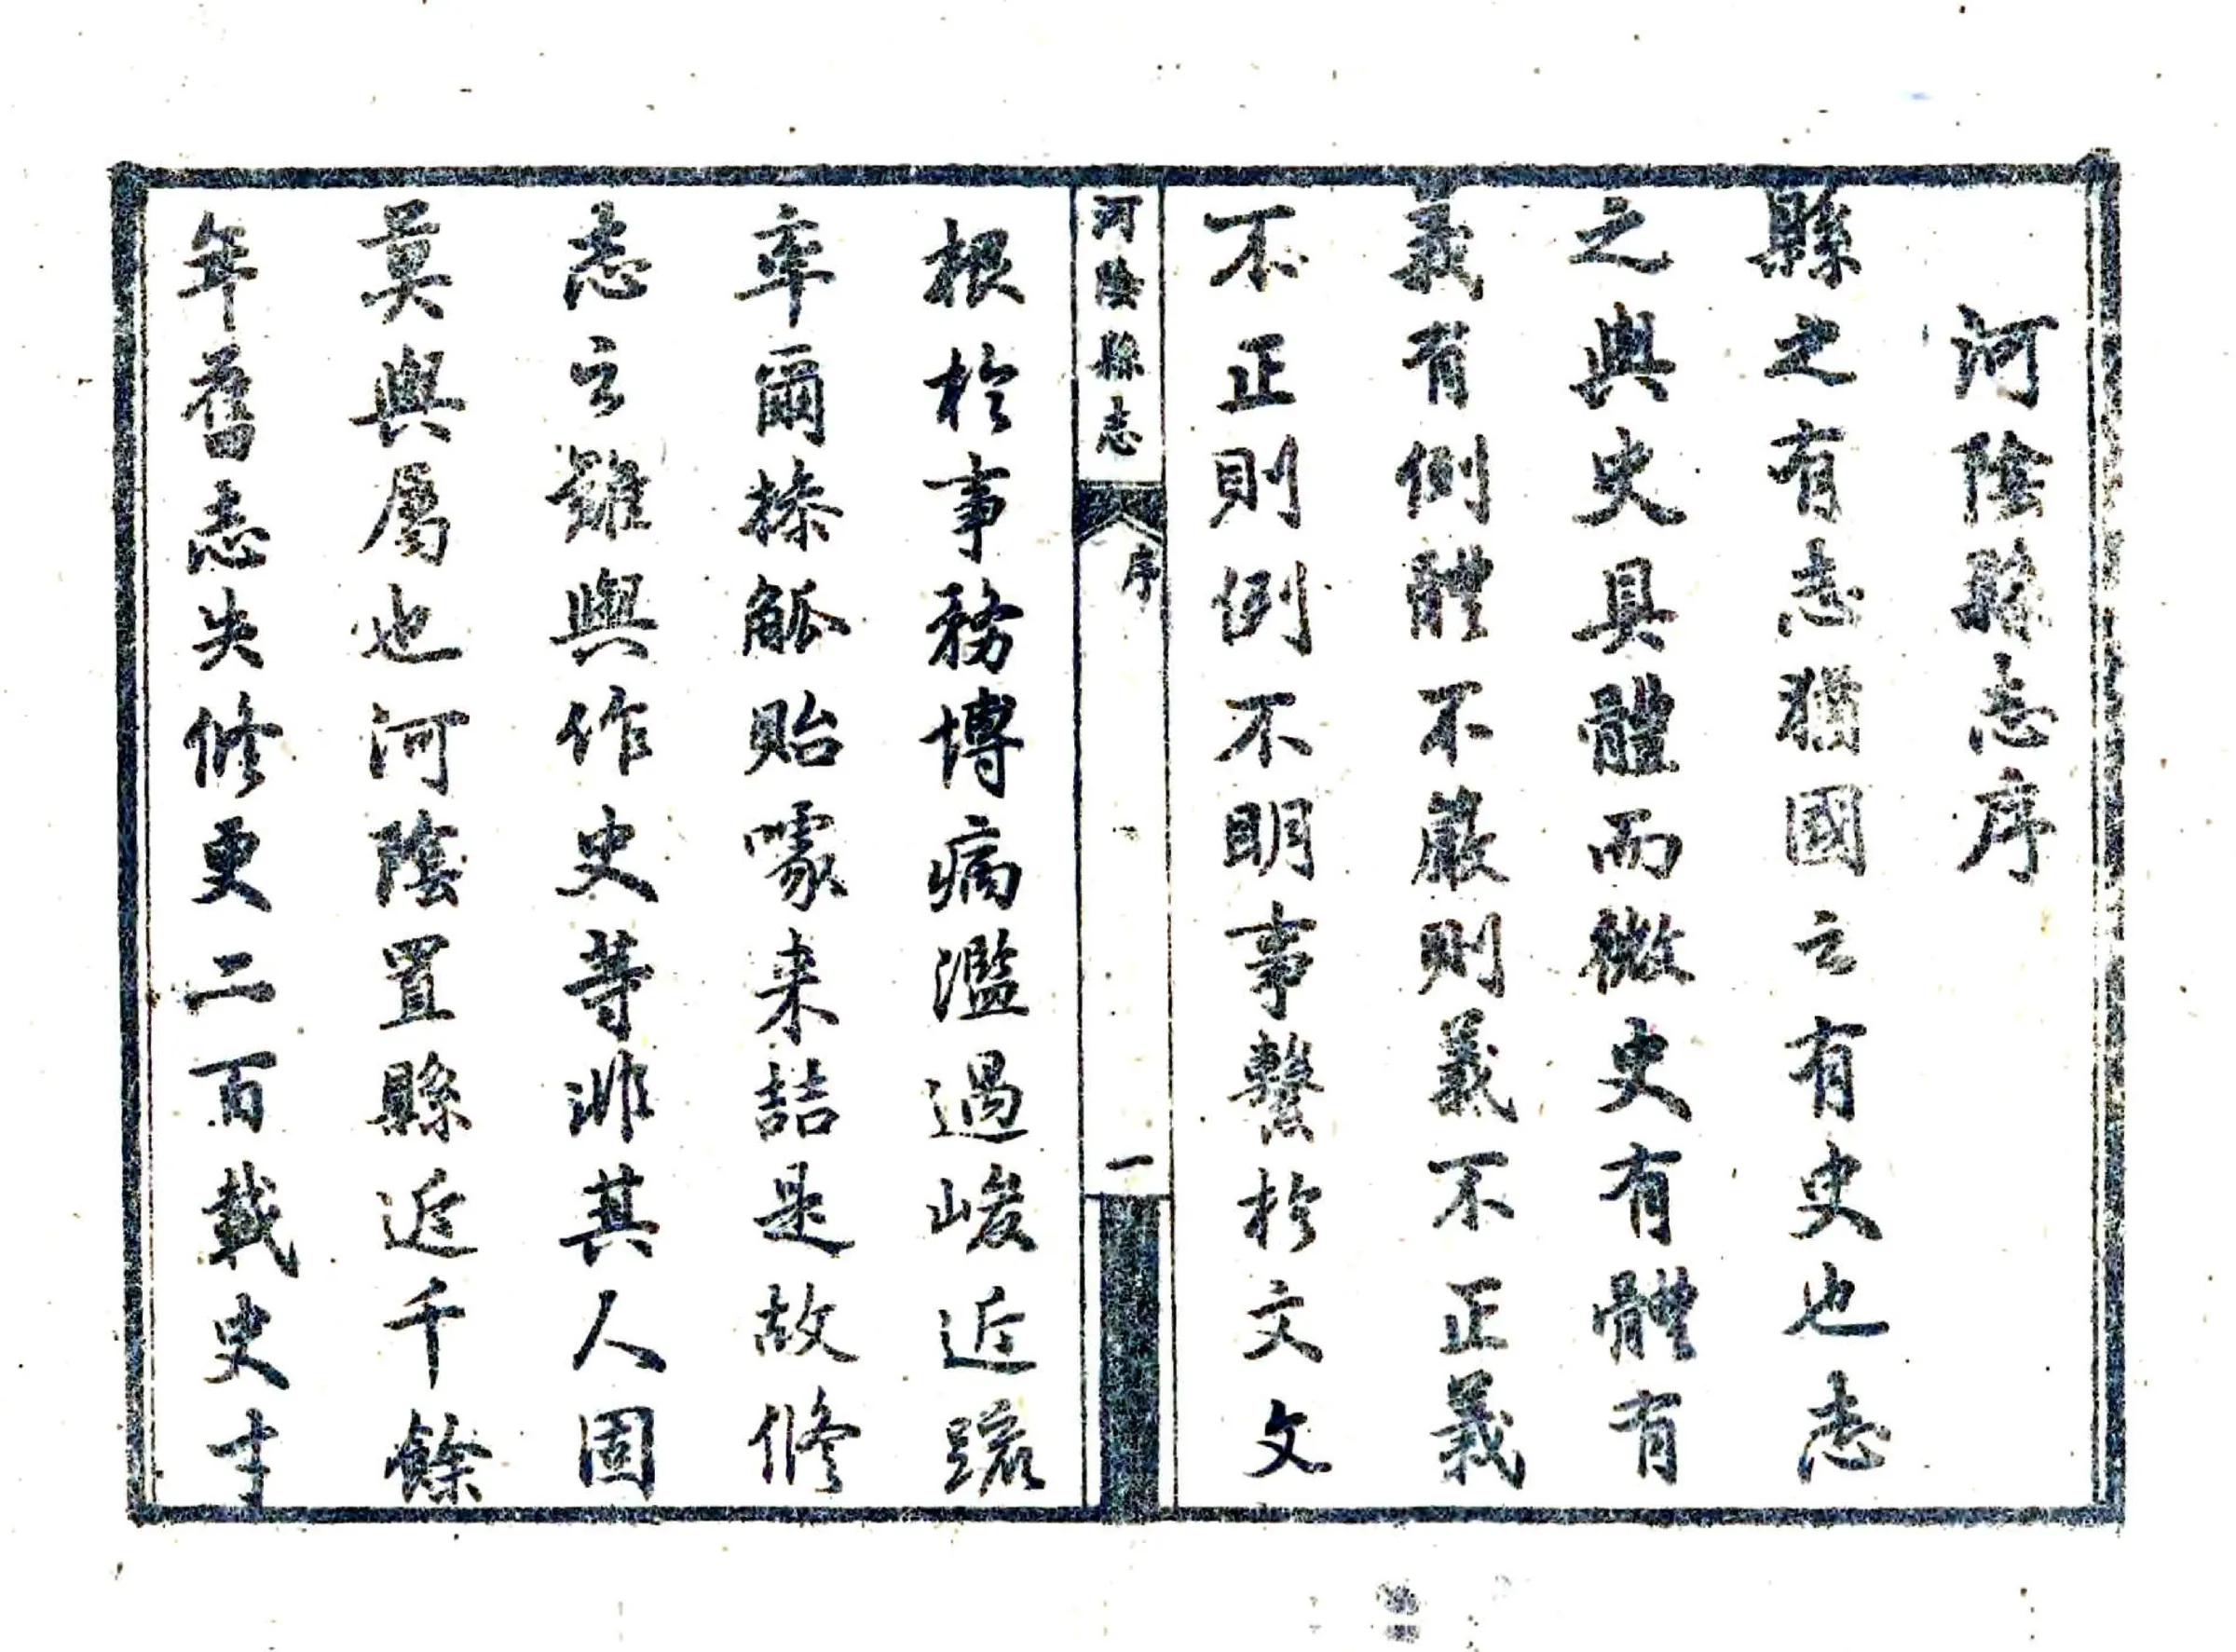 河陰縣志序
縣之有志猶國之有史也志
之與史具體而微史有體有
義有例體不嚴則義不正義
不正則例不明事繫於文文
河陰縣志
序
一
根於事務博病濫過峻近疏
率爾操觚貽噱来詰是故修
志之難與作史等非其人固
莫與屬也河陰置縣近千餘
年舊志失修更二百載史才